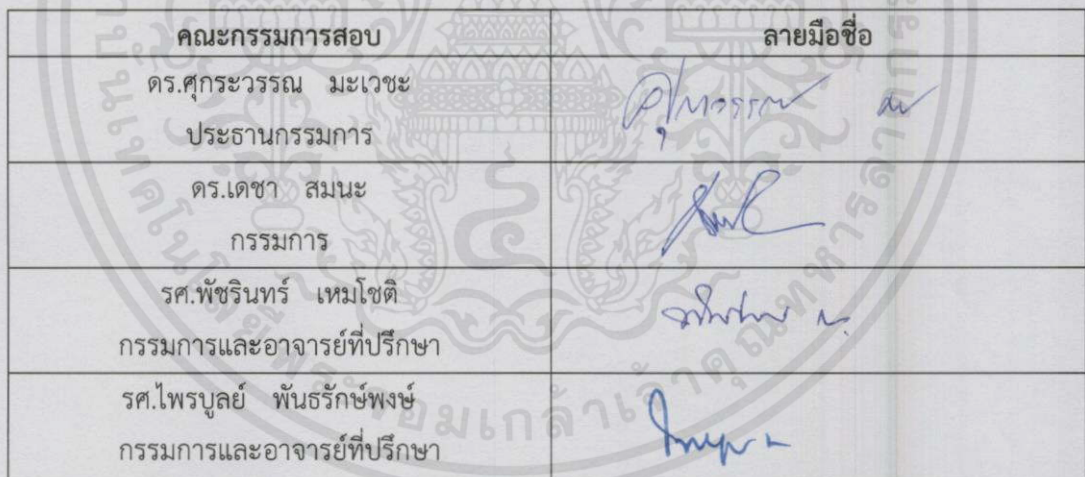 คณะกรรมการสอบ ลายมือชื่อ
ดร.ศุกระวรรณ มะเวชะ
ประธานกรรมการ
ดร.เดชา สมนะ
กรรมการ
รศ.พัชรินทร์ เหมโชติ
กรรมการและอาจารย์ที่ปรึกษา
รศ.ไพรบูลย์ พันธรักษ์พงษ์
กรรมการและอาจารย์ที่ปรึกษา